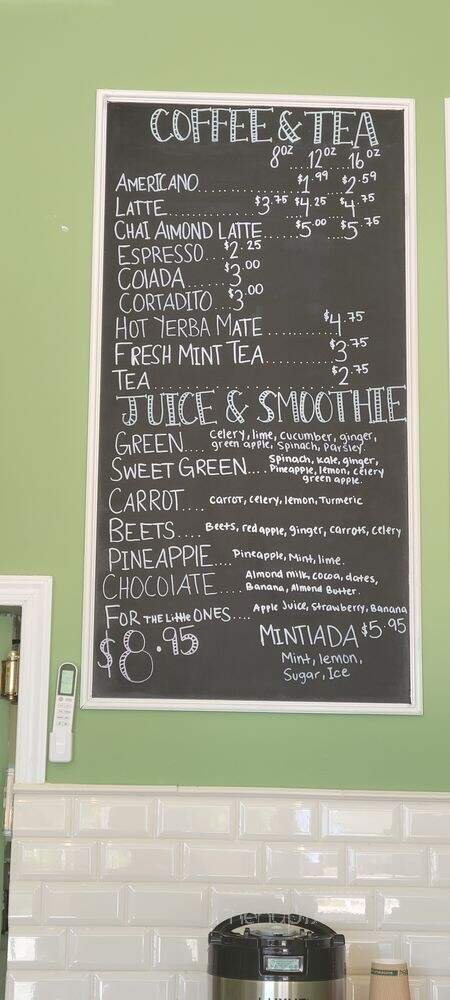 COFFEE & TEA
8oz ...12oz ...16oz
AMERICANO.................$1.99 $2.59
LATTE..............$3.75 $4.25 $4.75
CHAI AlMOND LATTE......$5.00 $5.75
ESPRESSO...$2.25
COlADA.....$3.00
CORTADITO...$3.00
HOT YERBA MATE...........$4.75
FRESH MINT TEA...........$3.75
TEA...........................$2.75
JUICE & SMOOTHIE
GREEN.... celery, lime, cucumber, ginger,
green apple, Spinach, Parsley
SWEET GREEN.... Spinach, kale, ginger,
Pineapple, lemon, celery
green apple.
CARROT.... carrot, celery, lemon, Turmeric
BEETS.... Beets, red apple, ginger, carrots, celery
PINEAPPLE.... Pineapple, Mint, lime.
CHOCOlATE.... Almond milk, cocoa, dates,
Banana, Almond Butter.
FOR THE Little ONES.... Apple Juice, Strawberry, Banana
$8.95
MINTlADA $5.95
Mint, lemon,
Sugar, Ice